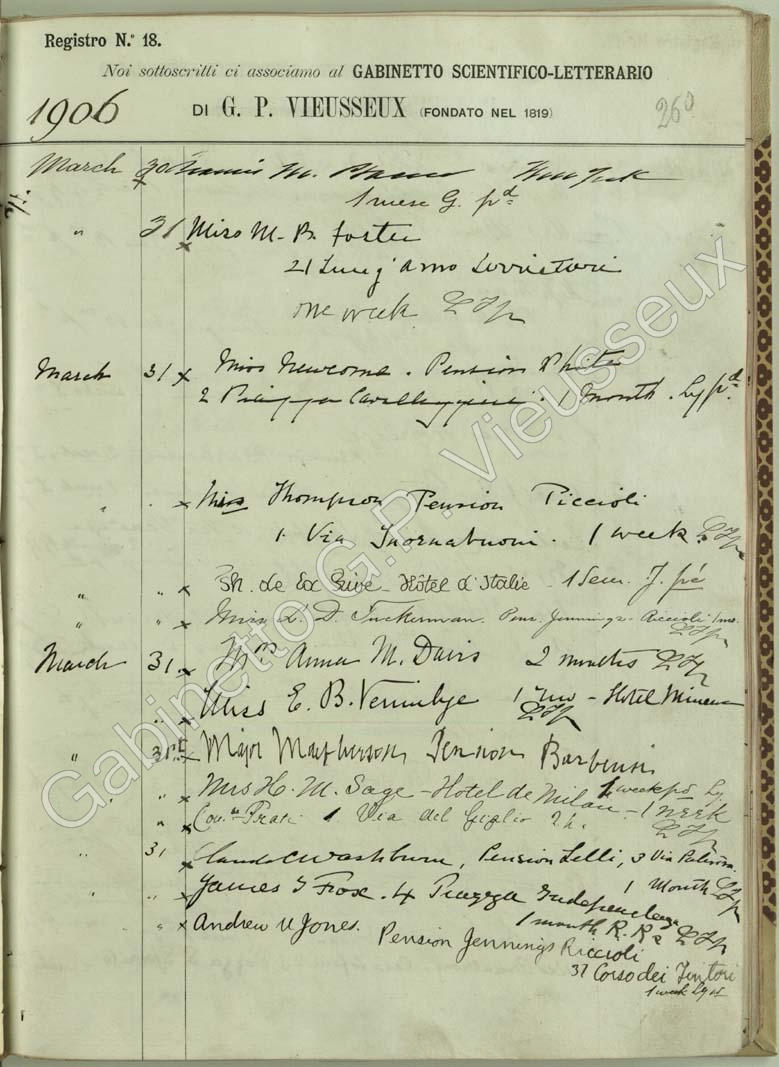 Registro N.º 18.
Noi sottoscritti ci associamo al GABINETTO SCIENTIFICO-LETTERARIO
1906
DI G. P. VIEUSSEUX (FONDATO NEL 1819)
260
March 30 Francis M. New York
1 mese G. pd
" 31 x Miss M. B. Foster
21 Lung'arno Serristori
one week
March 31 x Miss Newcome. Pension White
2 Piazza Cavalleggieri. 1 Month. Ly pd.
" " x Miss Thompson Pension Piccioli
1. Via Tornabuoni. 1 week.
" " x de La Rive - Hôtel d'Italie - 1 Sem. J. pé
" " x Miss L. D. Tuckerman. Pens. Jennings-Riccioli 1 mo.
March 31. x Mrs Anna M. Davis 2 months
" x Miss E. B. Vermilye 1 mo - Hotel Minerva
" 31st x Major Macpherson Pension Barbensi
" " x Mrs H. M. Sage - Hotel de Milan - 1 week
1 week pd Ly.
" x Prati 1 Via del Giglio
" 31 x Claude C Washburn, Pension Lelli, 3 Via
1 Month
" " x James Fox. 4 Piazza Independenza
1 month R. R.
" x Andrew Jones.
Pension Jennings Riccioli
37 Corso dei Tintori
1 week Ly
Gabinetto G.P. Vieusseux